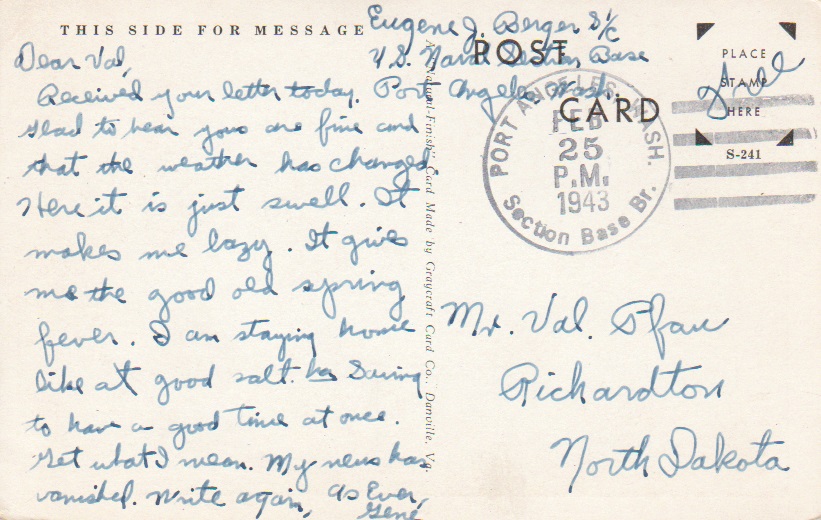 THIS SIDE FOR MESSAGE
Dear Val,
Received your letter today.
Glad to hear you are fine and
that the weather has changed.
Here it is just swell. It
makes me lazy. It gives
me the good old spring
fever. I am staying home
like a good salt. Saving
to have a good time at once.
Get what I mean. My news has
vanished. Write again,
As Ever,
Gene
Eugene J. Berger S 1/C
U.S. Naval Section Base
Port Angeles, Wash.
POST CARD
PLACE
STAMP
HERE
S-241
Free
PORT ANGELES, WASH.
FEB
25
P.M.
1943
Section Base Br.
A "Natural-Finish" Card Made by Graycraft Card Co., Danville, Va.
Mr. Val. Pfau
Richardton
North Dakota